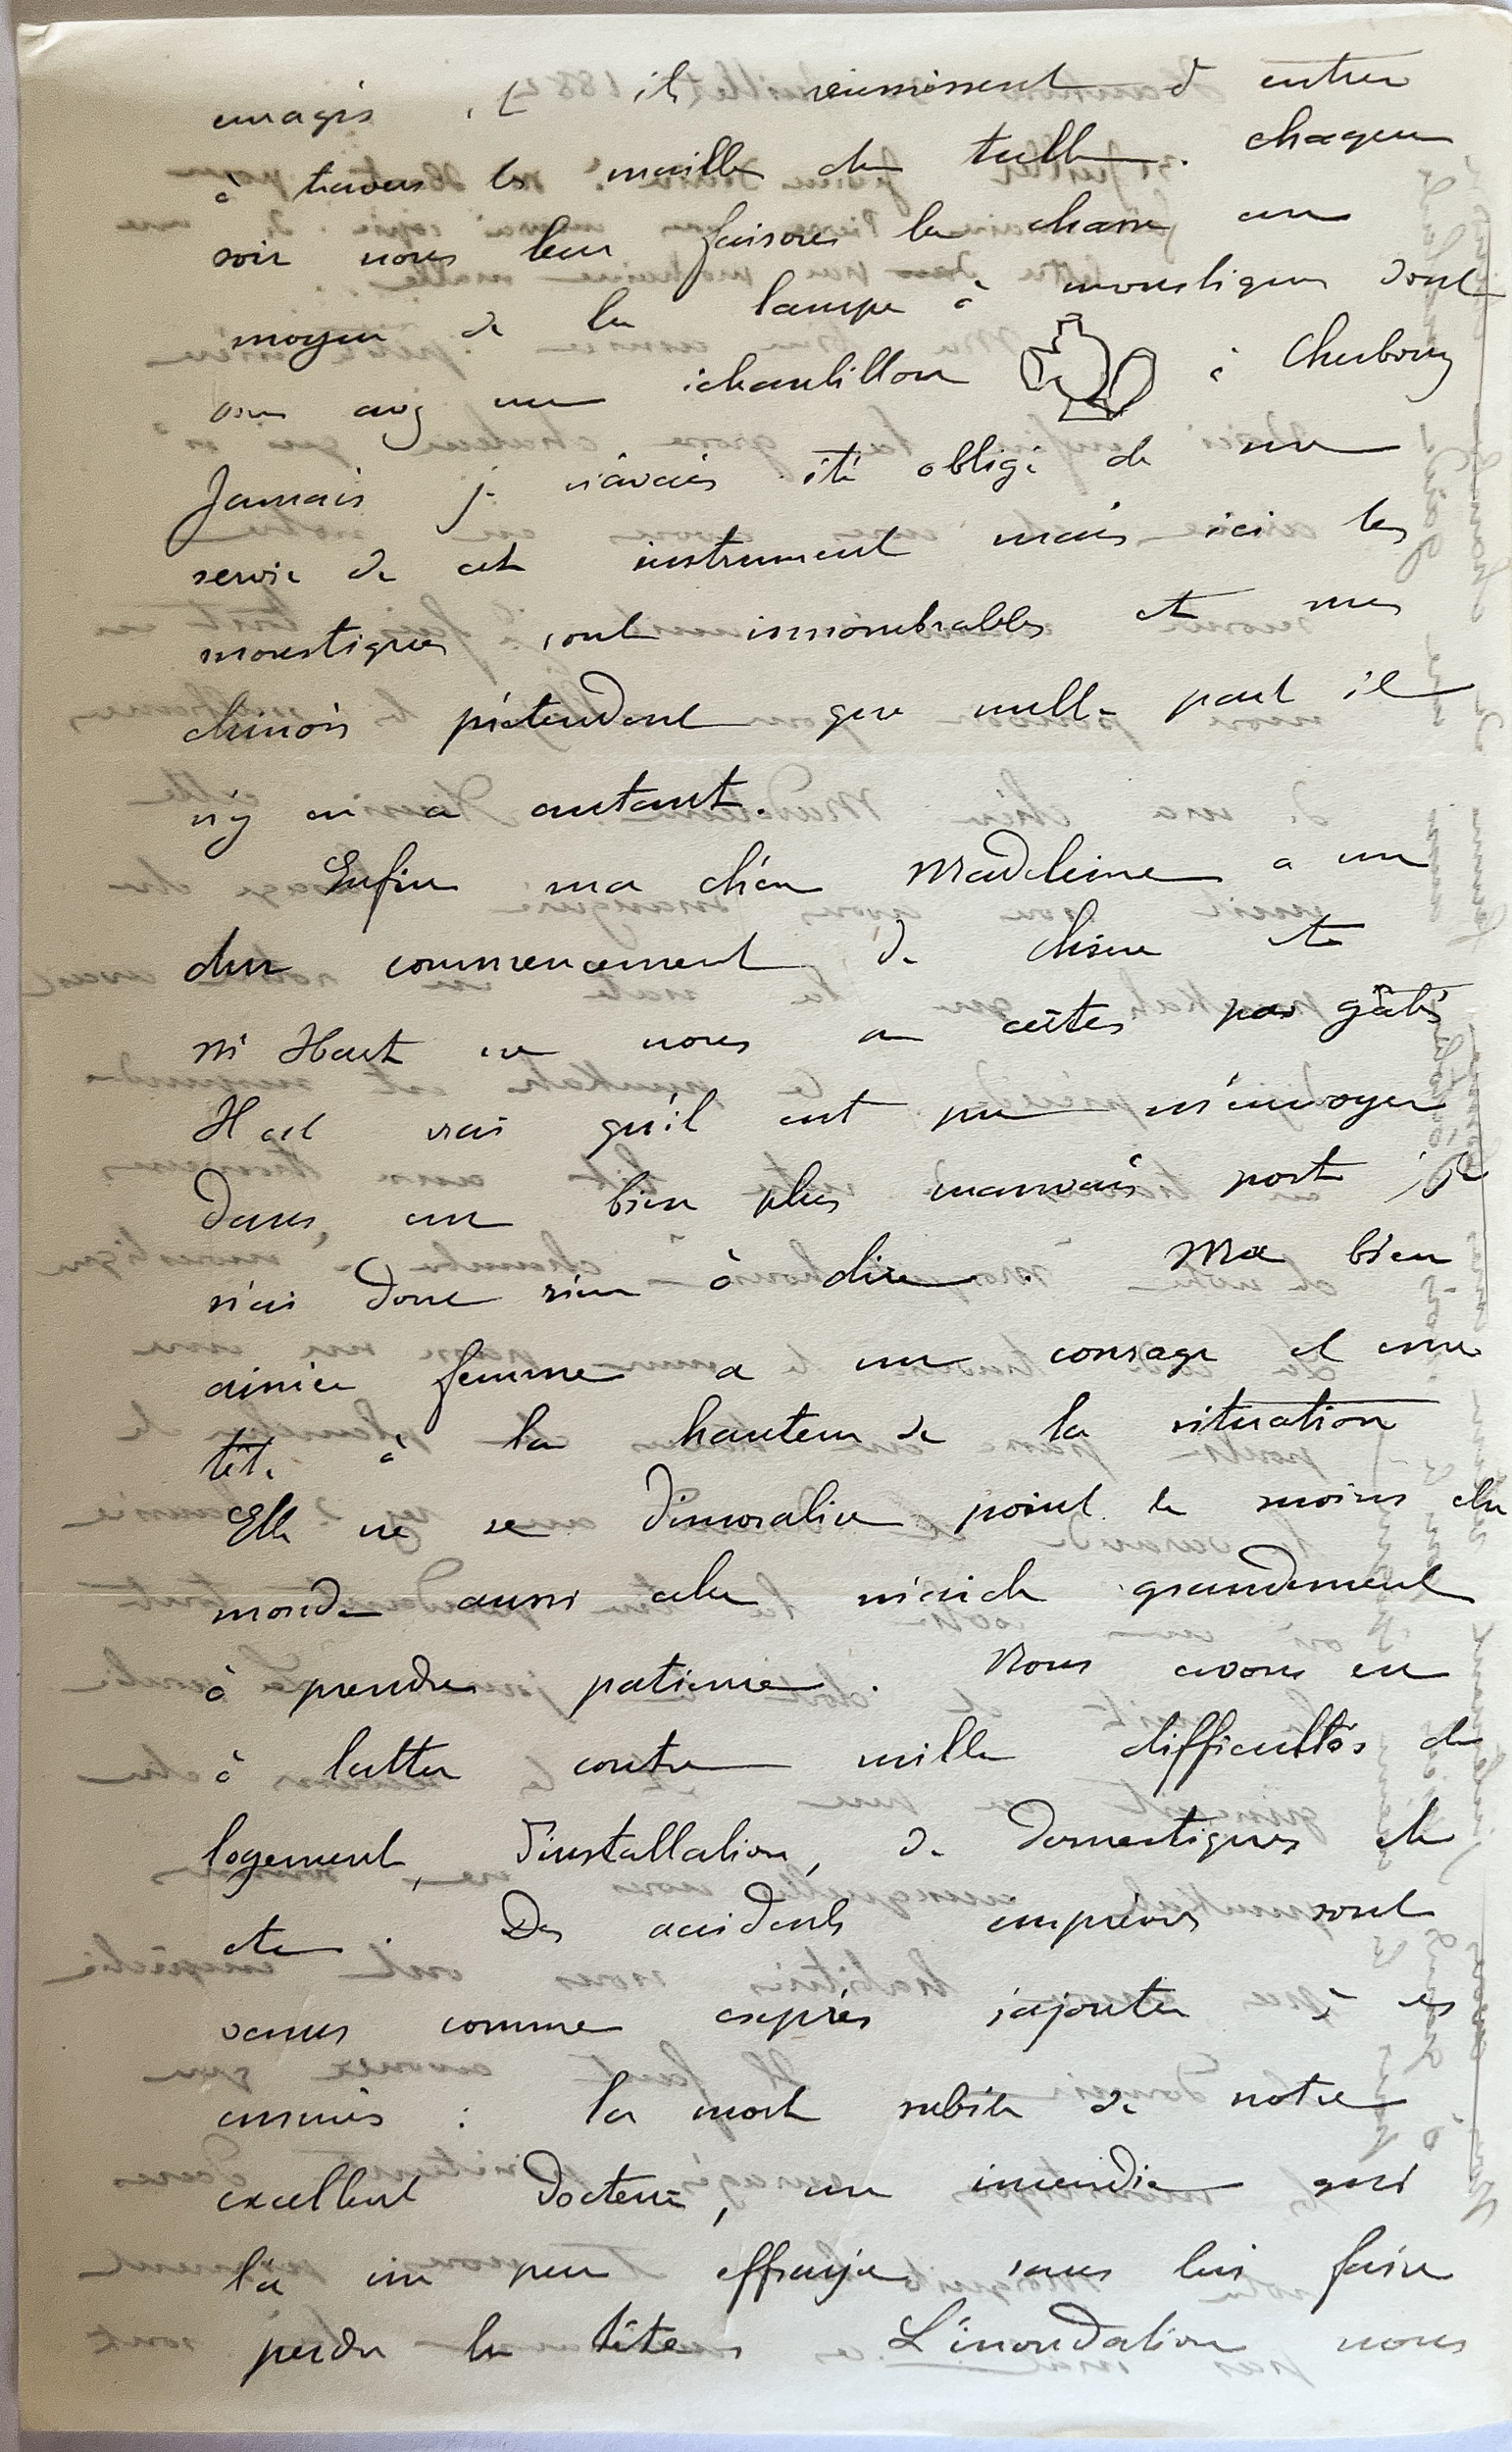 enragés et ils réussissent à entrer
à travers les mailles du tulle. Chaque
soir nous leur faisons la chasse au
moyen de la lampe à moustiques dont
vous avez un échantillon à Cherbourg
Jamais je n'avais été obligé de me
servir de cet instrument mais ici les
moustiques sont innombrables et mes
chinois prétendent que nulle part il
n'y en a autant.
Enfin ma chère Madeleine a un
dur commencement de Chine et
M. Hart ne nous a certes pas gâtés
Il est vrai qu'il eut pu m'envoyer
dans un bien plus mauvais port je
n'ai donc rien à dire. Ma bien
aimée femme a un courage et une
tête à la hauteur de la situation
Elle ne se démoralise point le moins du
monde aussi cela m'aide grandement
à prendre patience. Nous avons eu
à lutter contre mille difficultés de
logement, d'installation, de domestiques etc
etc. Des accidents imprévus sont
venus comme exprès s'ajouter à ces
ennuis : la mort subite de notre
excellent docteur, un incendie qui
l'a un peu effrayée sans lui faire
perdre la tête. L'inondation nous